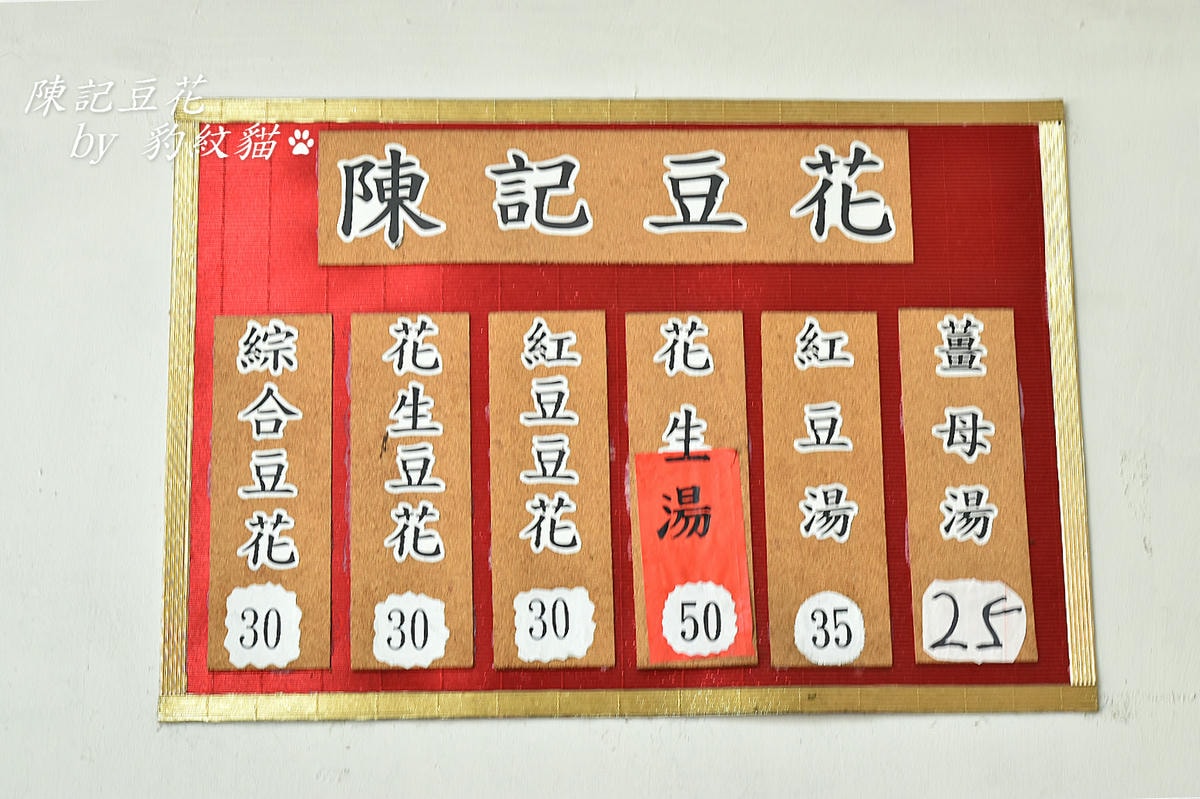 陳記豆花
by 豹紋貓
陳記豆花
綜合豆花
30
花生豆花
30
紅豆豆花
30
花生湯
50
紅豆湯
35
薑母湯
25